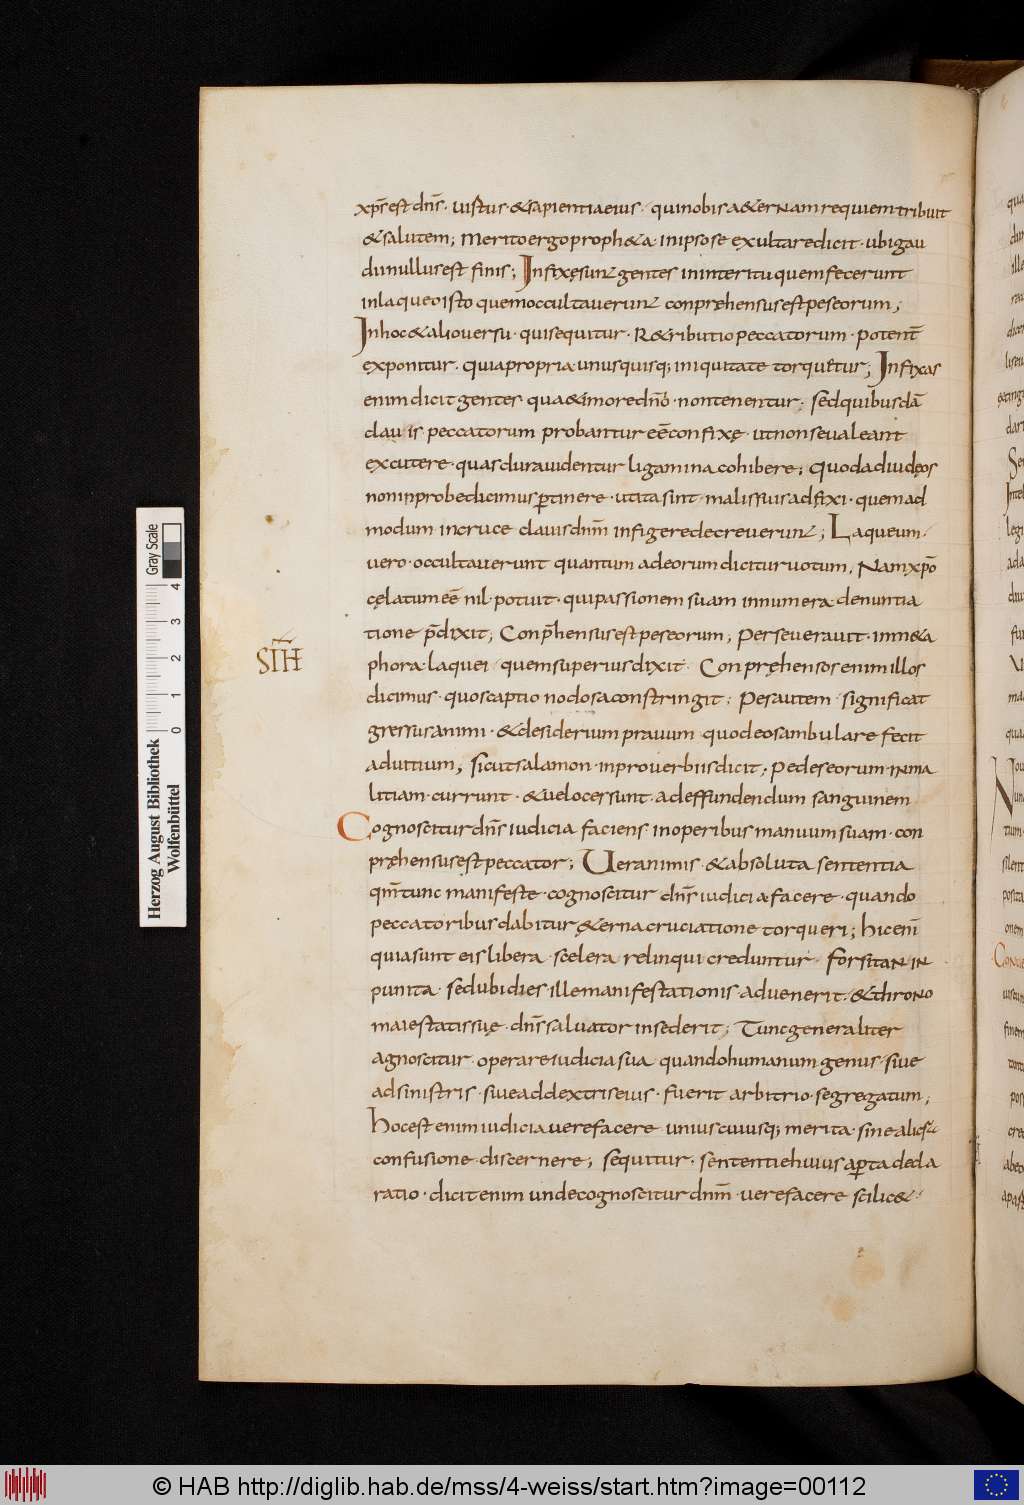 xp̄s est dn̄s · iustus · & sapientia eius · qui nobis a&ernam requiem tribuit
& salutem; Merito ergo proph&a · in ipso se exultare dicit · ubi gau
dii nullus est finis; Infixę sunt gentes in interitu quem fecerunt
in laqueo isto quem occultauerunt conpręhensus est pes eorum;
In hoc & alio uersu · qui sequitur · R&ributio peccatorum · potent̄
exponitur · quia propria unusquisq; iniquitate torqu&ur; Infixas
enim dicit gentes · qua& in ore dn̄o · non tenentur · sed quibusdā
clauis peccatorum probantur eē confixę · ut non se ualeant
excutere · quas dura uidentur ligamina cohibere; Quod ad iudęos
non inprobe dicimus ꝑtinere · ut ita sint malis suis adfixi · quemad
modum in cruce clauis dnm̄ infigere decreuerunt; Laqueum
uero · occultauerunt quantum ad eorum dicitur uotum, Nam xp̄o
cęlatum eē nil potuit · qui passionem suam innumera denuntia
tione p̄dixit; Conp̄hensus est pes eorum; Perseuerauit · in m&a
phora laquei · quem superius dixit · Conpręhensos enim illos
dicimus · quos captio nodosa constringit; Pes autem · significat
gressus animi · & desiderium prauum · quod eos ambulare fecit
ad uitium; sicut salamon · in prouerbiis dicit; Pedes eorum in ma
litiam · currunt · & ueloces sunt · ad effundendum sanguinem
SI͞H
Cognoscitur dn̄s iudicia faciens in operibus manuum suam · con
pręhensus est peccator; Uer animis · & absoluta sententia
qm̄ tunc manifeste · cognoscitur dn̄s iudicia facere · quando
peccatoribus dabitur · &erna cruciatione torqueri; hic eni̅
quia sunt eis libera · scelera relinqui creduntur · forsitan in
punita · sed ubi dies ille manifestationis aduenerit · & throno
maiestatis suę · dn̄s saluator insederit; Tunc generaliter
agnoscitur · operare iudicia sua quando humanum genus · siue
ad sinistris · siue ad dextris eius · fuerit arbitrio · segregatum;
hoc est enim iudicia uere facere uniuscuiusq; merita · sine
confusione · discernere; sequitur · sententie huius aꝑta decla
ratio · dicit enim unde cognoscitur dnm̄ · uere facere scilic&
Herzog August Bibliothek
Wolfenbüttel
0 1 2 3 4
Gray Scale
© HAB http://diglib.hab.de/mss/4-weiss/start.htm?image=00112